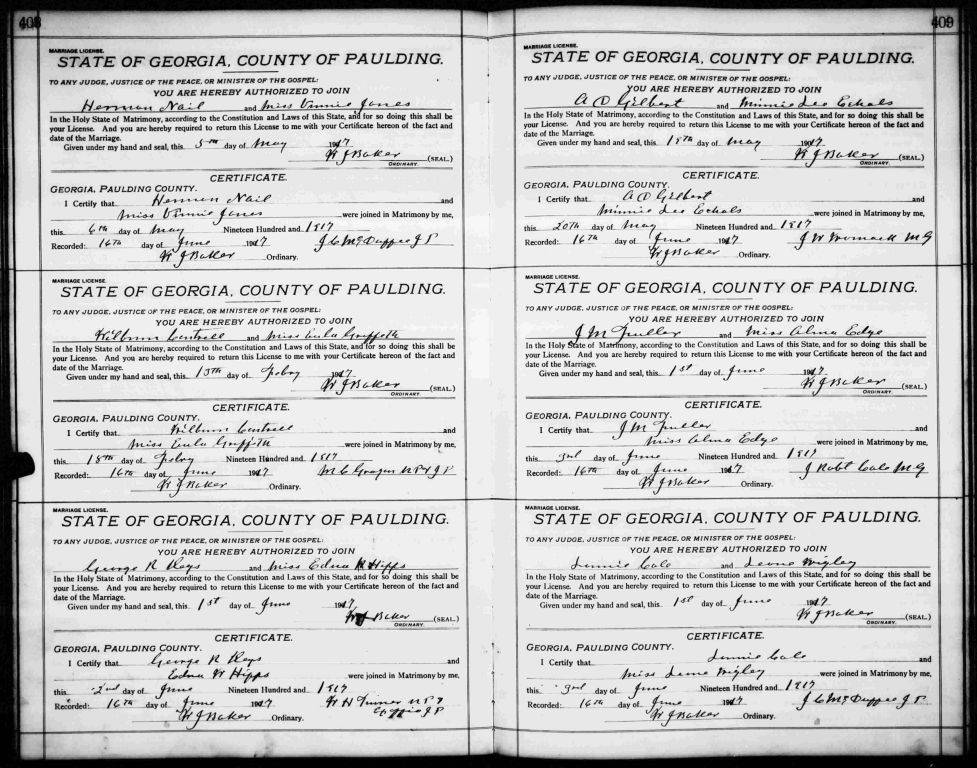 408
MARRIAGE LICENSE.
STATE OF GEORGIA, COUNTY OF PAULDING.
TO ANY JUDGE, JUSTICE OF THE PEACE, OR MINISTER OF THE GOSPEL:
YOU ARE HEREBY AUTHORIZED TO JOIN
Herman Nail and Miss Vinnie Jones
In the Holy State of Matrimony, according to the Constitution and Laws of this State, and for so doing this shall be
your License. And you are hereby required to return this License to me with your Certificate hereon of the fact and
date of the Marriage.
Given under my hand and seal, this 5th day of May 1917
W J Baker (SEAL.)
ORDINARY.
CERTIFICATE.
GEORGIA, PAULDING COUNTY.
I Certify that Herman Nail and
Miss Vinnie Jones were joined in Matrimony by me,
this 6th day of May Nineteen Hundred and 1917
Recorded: 16th day of June 1917 J C McDuffie J P
W J Baker Ordinary.
MARRIAGE LICENSE.
STATE OF GEORGIA, COUNTY OF PAULDING.
TO ANY JUDGE, JUSTICE OF THE PEACE, OR MINISTER OF THE GOSPEL:
YOU ARE HEREBY AUTHORIZED TO JOIN
Wilburn Cantrell and Miss Eula Griffeth
In the Holy State of Matrimony, according to the Constitution and Laws of this State, and for so doing this shall be
your License. And you are hereby required to return this License to me with your Certificate hereon of the fact and
date of the Marriage.
Given under my hand and seal, this 13th day of Feby 1917
W J Baker (SEAL.)
ORDINARY.
CERTIFICATE.
GEORGIA, PAULDING COUNTY.
I Certify that Wilburn Cantrell and
Miss Eula Griffeth were joined in Matrimony by me,
this 18th day of Feby Nineteen Hundred and 1917
Recorded: 16th day of June 1917 M C J P
W J Baker Ordinary.
MARRIAGE LICENSE.
STATE OF GEORGIA, COUNTY OF PAULDING.
TO ANY JUDGE, JUSTICE OF THE PEACE, OR MINISTER OF THE GOSPEL:
YOU ARE HEREBY AUTHORIZED TO JOIN
George R Keys and Miss Edna W Hipps
In the Holy State of Matrimony, according to the Constitution and Laws of this State, and for so doing this shall be
your License. And you are hereby required to return this License to me with your Certificate hereon of the fact and
date of the Marriage.
Given under my hand and seal, this 1st day of June 1917
W J Baker (SEAL.)
ORDINARY.
CERTIFICATE.
GEORGIA, PAULDING COUNTY.
I Certify that George R Keys and
Edna W Hipps were joined in Matrimony by me,
this 2nd day of June Nineteen Hundred and 1917
Recorded: 16th day of June 1917 W H Turner N P &
W J Baker Ordinary. J P
409
MARRIAGE LICENSE.
STATE OF GEORGIA, COUNTY OF PAULDING.
TO ANY JUDGE, JUSTICE OF THE PEACE, OR MINISTER OF THE GOSPEL:
YOU ARE HEREBY AUTHORIZED TO JOIN
A D Gilbert and Minnie Lee Echols
In the Holy State of Matrimony, according to the Constitution and Laws of this State, and for so doing this shall be
your License. And you are hereby required to return this License to me with your Certificate hereon of the fact and
date of the Marriage.
Given under my hand and seal, this 18th day of May 1917
W J Baker (SEAL.)
ORDINARY.
CERTIFICATE.
GEORGIA, PAULDING COUNTY.
I Certify that A D Gilbert and
Minnie Lee Echols were joined in Matrimony by me,
this 20th day of May Nineteen Hundred and 1917
Recorded: 16th day of June 1917 J W Womack M G
W J Baker Ordinary.
MARRIAGE LICENSE.
STATE OF GEORGIA, COUNTY OF PAULDING.
TO ANY JUDGE, JUSTICE OF THE PEACE, OR MINISTER OF THE GOSPEL:
YOU ARE HEREBY AUTHORIZED TO JOIN
J M Fuller and Miss Alma Edge
In the Holy State of Matrimony, according to the Constitution and Laws of this State, and for so doing this shall be
your License. And you are hereby required to return this License to me with your Certificate hereon of the fact and
date of the Marriage.
Given under my hand and seal, this 1st day of June 1917
W J Baker (SEAL.)
ORDINARY.
CERTIFICATE.
GEORGIA, PAULDING COUNTY.
I Certify that J M Fuller and
Miss Alma Edge were joined in Matrimony by me,
this 3rd day of June Nineteen Hundred and 1917
Recorded: 16th day of June 1917 J Robt Cole M G
W J Baker Ordinary.
MARRIAGE LICENSE.
STATE OF GEORGIA, COUNTY OF PAULDING.
TO ANY JUDGE, JUSTICE OF THE PEACE, OR MINISTER OF THE GOSPEL:
YOU ARE HEREBY AUTHORIZED TO JOIN
Cole and Leone Wigley
In the Holy State of Matrimony, according to the Constitution and Laws of this State, and for so doing this shall be
your License. And you are hereby required to return this License to me with your Certificate hereon of the fact and
date of the Marriage.
Given under my hand and seal, this 1st day of June 1917
W J Baker (SEAL.)
ORDINARY.
CERTIFICATE.
GEORGIA, PAULDING COUNTY.
I Certify that Cole and
Miss Leone Wigley were joined in Matrimony by me,
this 3rd day of June Nineteen Hundred and 1917
Recorded: 16th day of June 1917 J C McDuffie J P
W J Baker Ordinary.